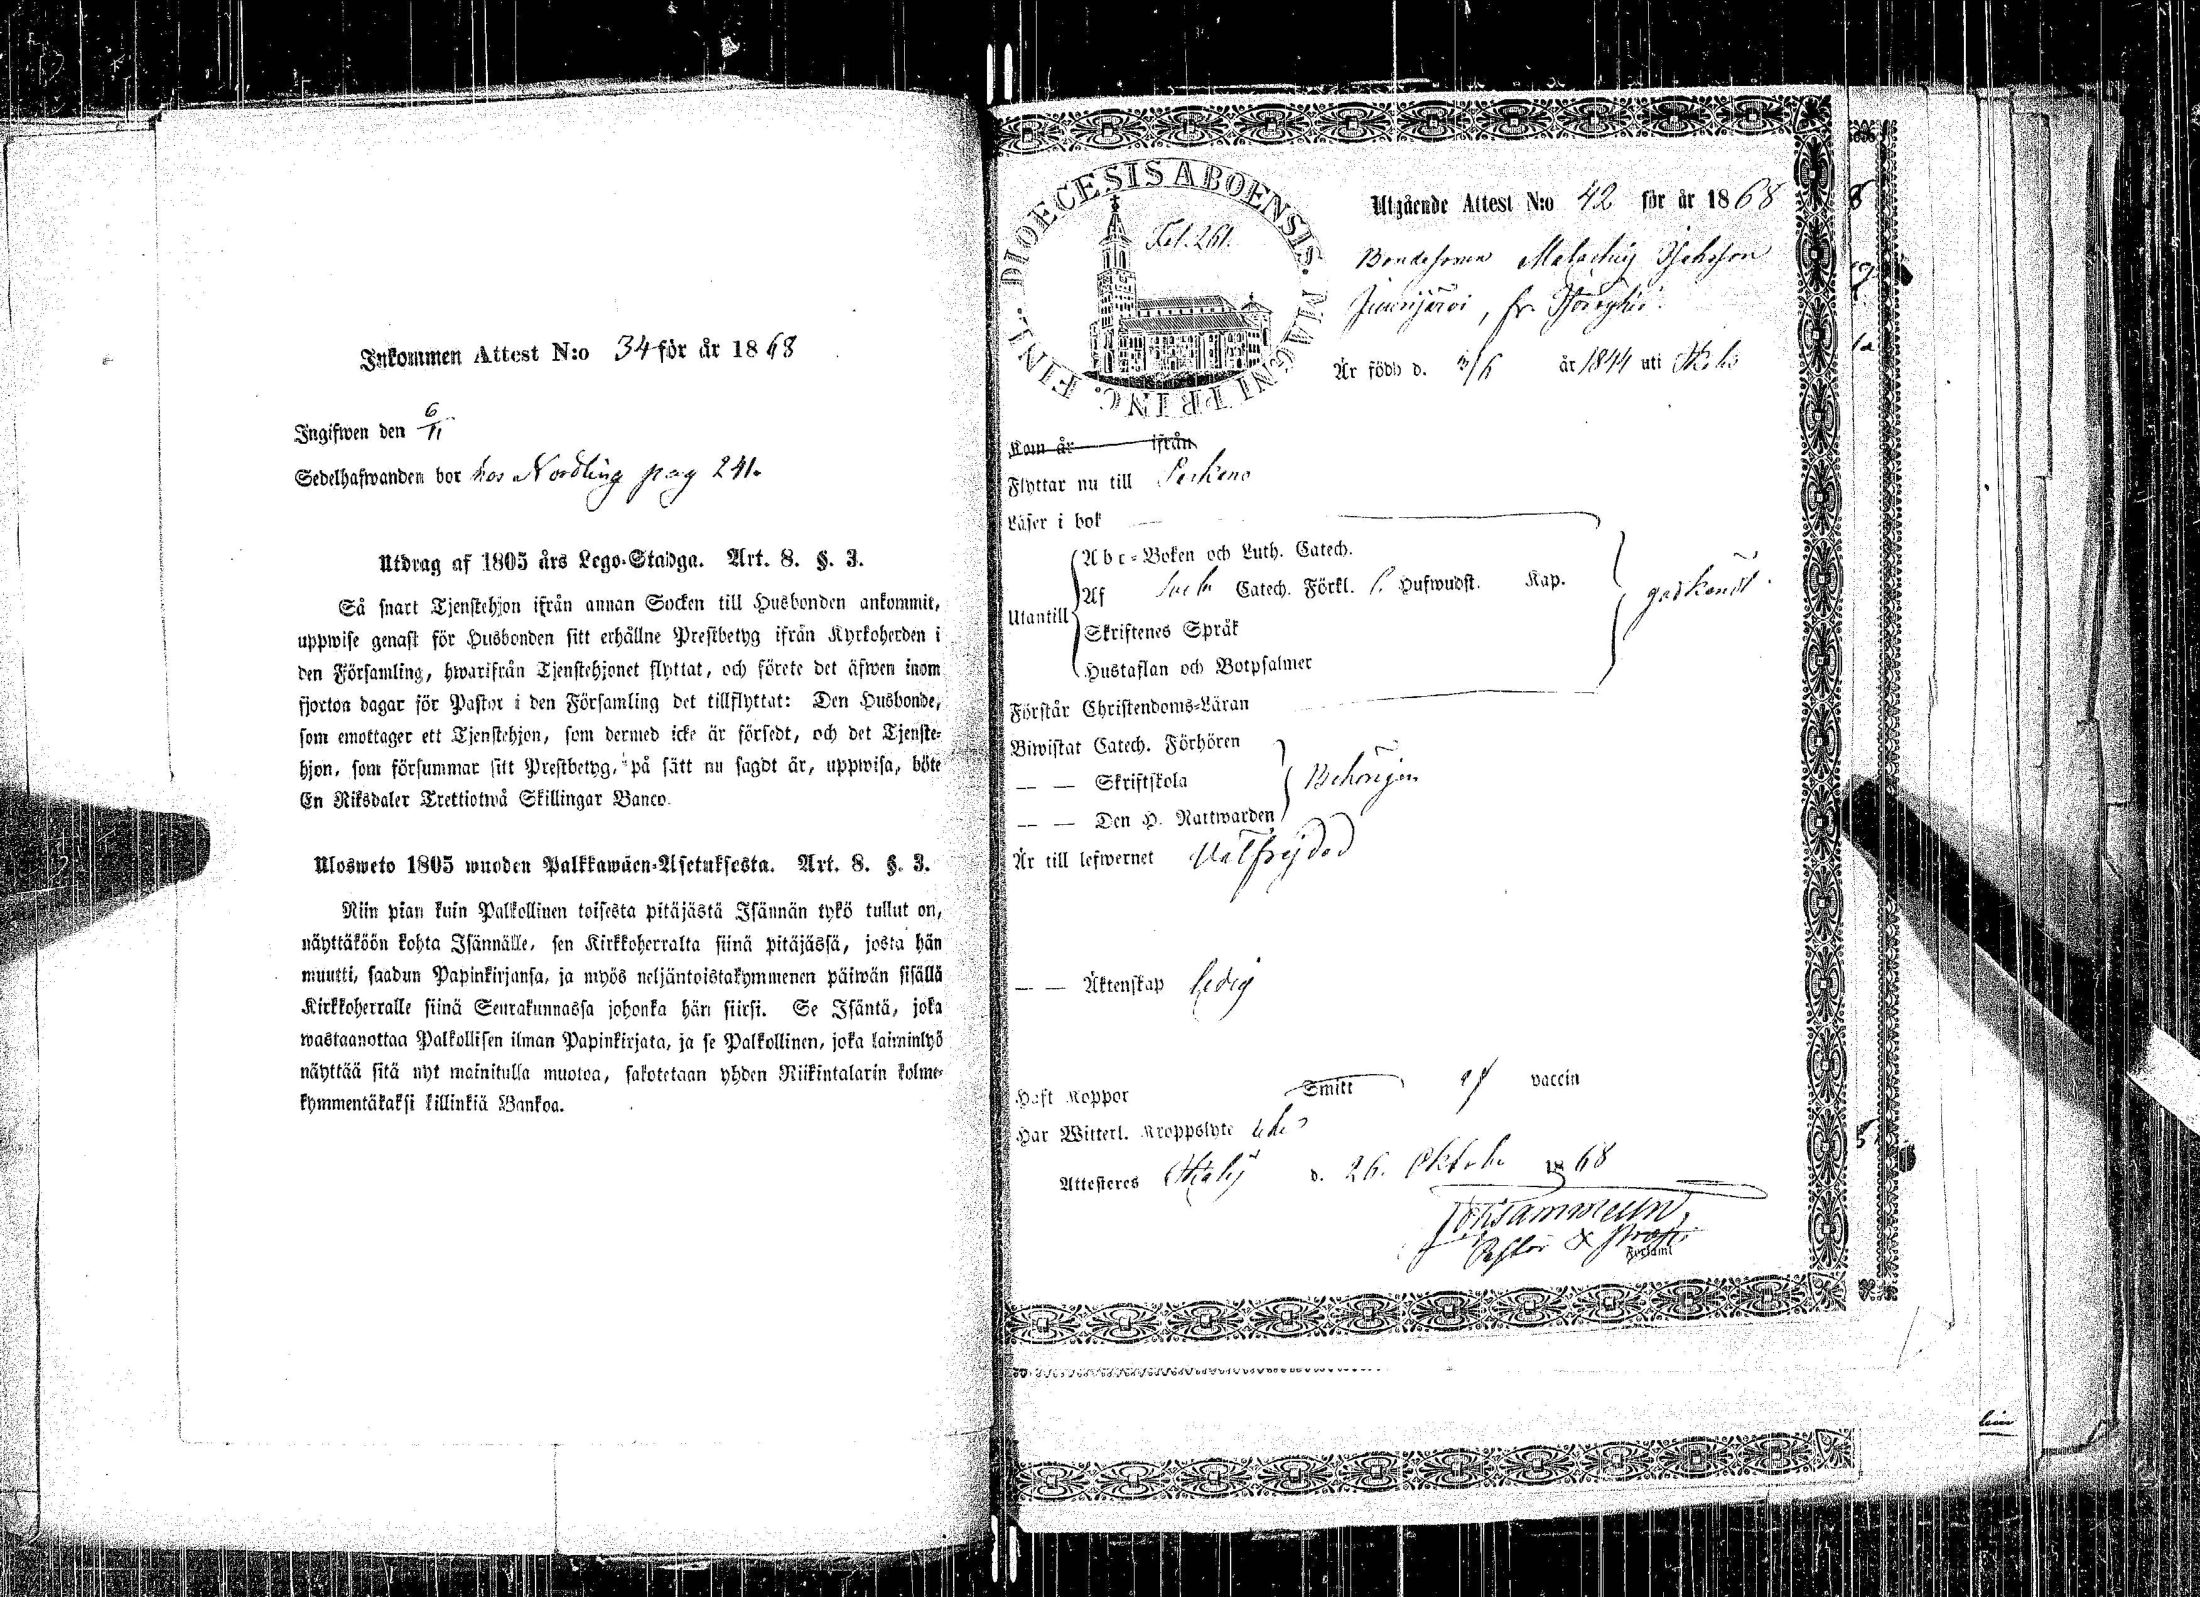 Inkommen Attest N:o 34 för år 1868
Ingifwen den 6/11
Sedelhafwanden bor hos Nordling pag 241.
Utdrag af 1805 års Lego-Stadga. Art. 8. §. 3.
Så snart Tjenstehjon ifrån annan Socken till Husbonden ankommit,
uppwise genast för Husbonden sitt erhållne Prestbetyg ifrån Kyrkoherden i
den Församling, hwarifrån Tjenstehjonet flyttat, och förete det äfwen inom
fjorton dagar för Pastor i den Församling det tillflyttat: Den Husbonde,
som emottager ett Tjenstehjon, som dermed icke är försedt, och det Tjenste-
hjon, som försummar sitt Prestbetyg, på sätt nu sagdt är, uppwisa, böte
En Riksdaler Trettiotwå Skillingar Banco.
Ulosweto 1805 wuoden Palkkawäen-Asetuksesta. Art. 8. §. 3.
Niin pian kuin Palkollinen toisesta pitäjästä Isännän tykö tullut on,
näyttäköön kohta Isännälle, sen Kirkkoherralta siinä pitäjässä, josta hän
muutti, saadun Papinkirjansa, ja myös neljäntoistakymmenen päiwän sisällä
Kirkkoherralle siinä Seurakunnassa johonka hän siirsi. Se Isäntä, joka
wastaanottaa Palkollisen ilman Papinkirjata, ja se Palkollinen, joka laiminlyö
näyttää sitä nyt mainitulla muotoa, sakotetaan yhden Riikintalarin kolme-
kymmentäkaksi killinkiä Bankoa.
DIOECESIS ABOENSIS. MAGNI PRINC. FINL.
Fol. 261.
Utgående Attest N:o 42 för år 1868
Bondesonen
Är född d. /6 år 1844 uti
Kom år ifrån
Flyttar nu till
Läser i bok
Abc-Boken och Luth. Catech.
Utantill Af Catech. Förkl. Hufwudst. Kap. godkändt.
Skriftenes Språk
Hustaflan och Botpsalmer
Förstår Christendoms-Läran
Biwistat Catech. Förhören
— — Skriftskola Behörigen
— — Den H. Nattwarden
Är till lefwernet Välfrejdad
— — Äktenskap ledig
Haft Koppor Smitt af vaccin
Har Witterl. Kroppslyte
Attesteres d. 26. Oktober 1868
Pastor &
Församl